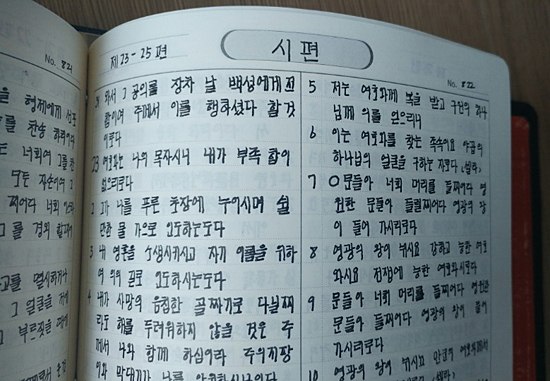 No. 821
형제에게 선포
를 찬송 하리이다
는 너희여 그를 찬
모든 자손이여 그
지어다 너희 이스
그를 경외 할지어
그 얼굴을 저에
부르짖을 때에
제23-25편
시편
No. 822
31 와서 그 공의를 장차 날 백성에게 전
함이여 주께서 이를 행하셨다 할것
이로다
23 여호와는 나의 목자시니 내가 부족 함이
없으리로다
2 그가 나를 푸른 초장에 누이시며 쉴
만한 물 가으로 인도하시는도다
3 내 영혼을 소생시키시고 자기 이름을 위하
여 의의 길로 인도하시는도다
4 내가 사망의 음침한 골짜기로 다닐찌
라도 해를 두려워하지 않을 것은 주
께서 나와 함께 하심이라 주의 지팡
이와 막대기가 나를 안위하시나이다
5 저는 여호와께 복을 받고 구원의 하나
님께 의를 얻으리니
6 이는 여호와를 찾는 족속이요 야곱의
하나님의 얼굴을 구하는 자로다 (셀라)
7 문들아 너희 머리를 들찌어다 영
원한 문들아 들릴찌어다 영광의 왕
이 들어 가시리로다
8 영광의 왕이 뉘시요 강하고 능한 여호
와시요 전쟁에 능한 여호와시로다
9 문들아 너희 머리를 들찌어다 영원한
문들아 들찌어다 영광의 왕이 들어
가시리로다
10 영광의 왕이 뉘시뇨 만군의 여호와께서